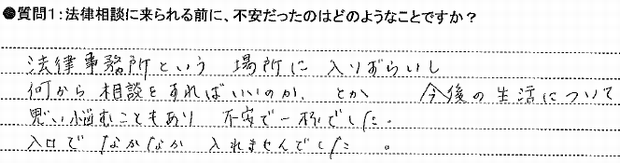 ●質問1:法律相談に来られる前に、不安だったのはどのようなことですか?
法律事務所という 場所に 入りずらいし
何から 相談をすればいいのか、とか 今後の生活について
思い悩むこともあり 不安で一杯でした。
入口で なかなか 入れませんでした。